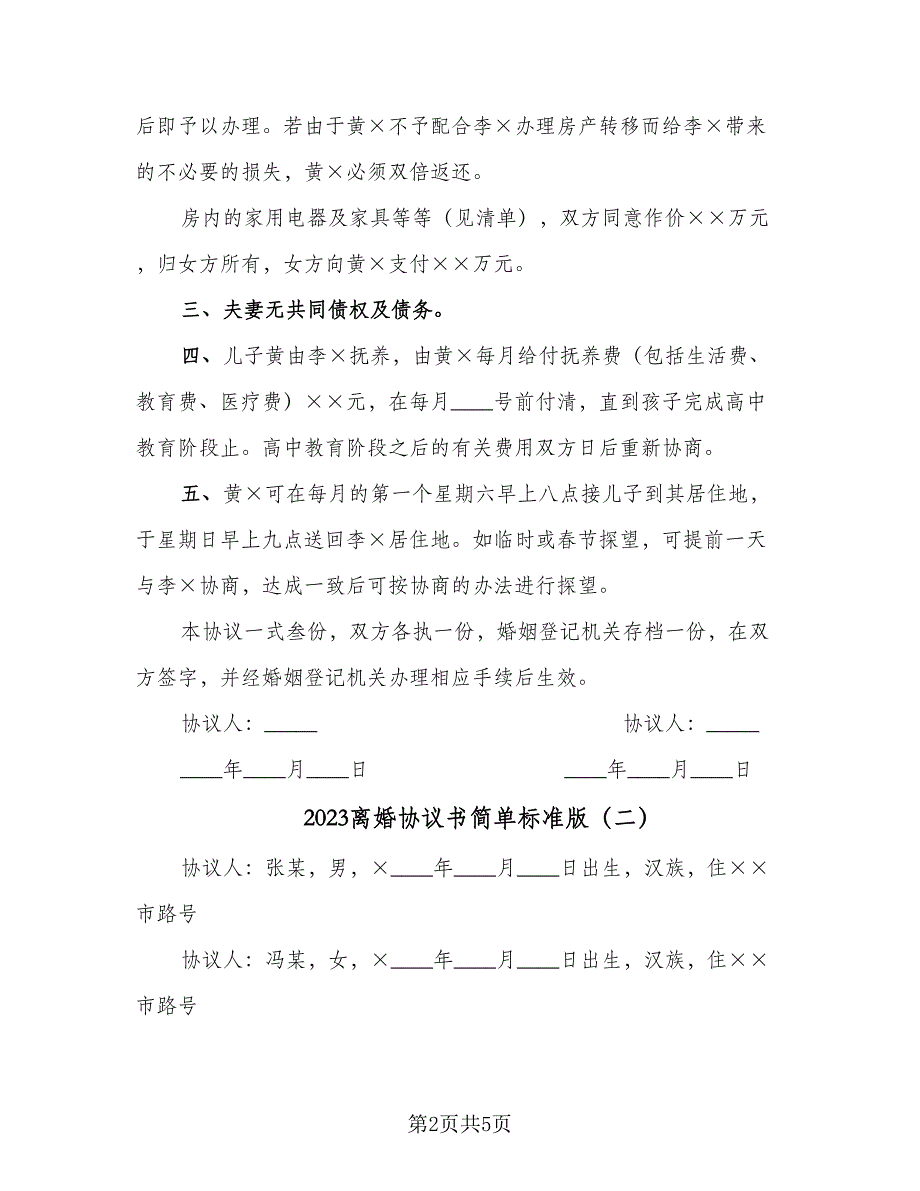 后即予以办理。若由于黄×不予配合李×办理房产转移而给李×带来
的不必要的损失，黄×必须双倍返还。
房内的家用电器及家具等等（见清单），双方同意作价××万元
，归女方所有，女方向黄×支付××万元。
三、夫妻无共同债权及债务。
四、儿子黄由李×抚养，由黄×每月给付抚养费（包括生活费、
教育费、医疗费）××元，在每月____号前付清，直到孩子完成高中
教育阶段止。高中教育阶段之后的有关费用双方日后重新协商。
五、黄×可在每月的第一个星期六早上八点接儿子到其居住地，
于星期日早上九点送回李×居住地。如临时或春节探望，可提前一天
与李×协商，达成一致后可按协商的办法进行探望。
本协议一式叁份，双方各执一份，婚姻登记机关存档一份，在双
方签字，并经婚姻登记机关办理相应手续后生效。
协议人：_____ 协议人：_____
____年____月____日 ____年____月____日
2023离婚协议书简单标准版（二）
协议人：张某，男，×____年____月____日出生，汉族，住××
市路号
协议人：冯某，女，×____年____月____日出生，汉族，住××
市路号
第2页共5页